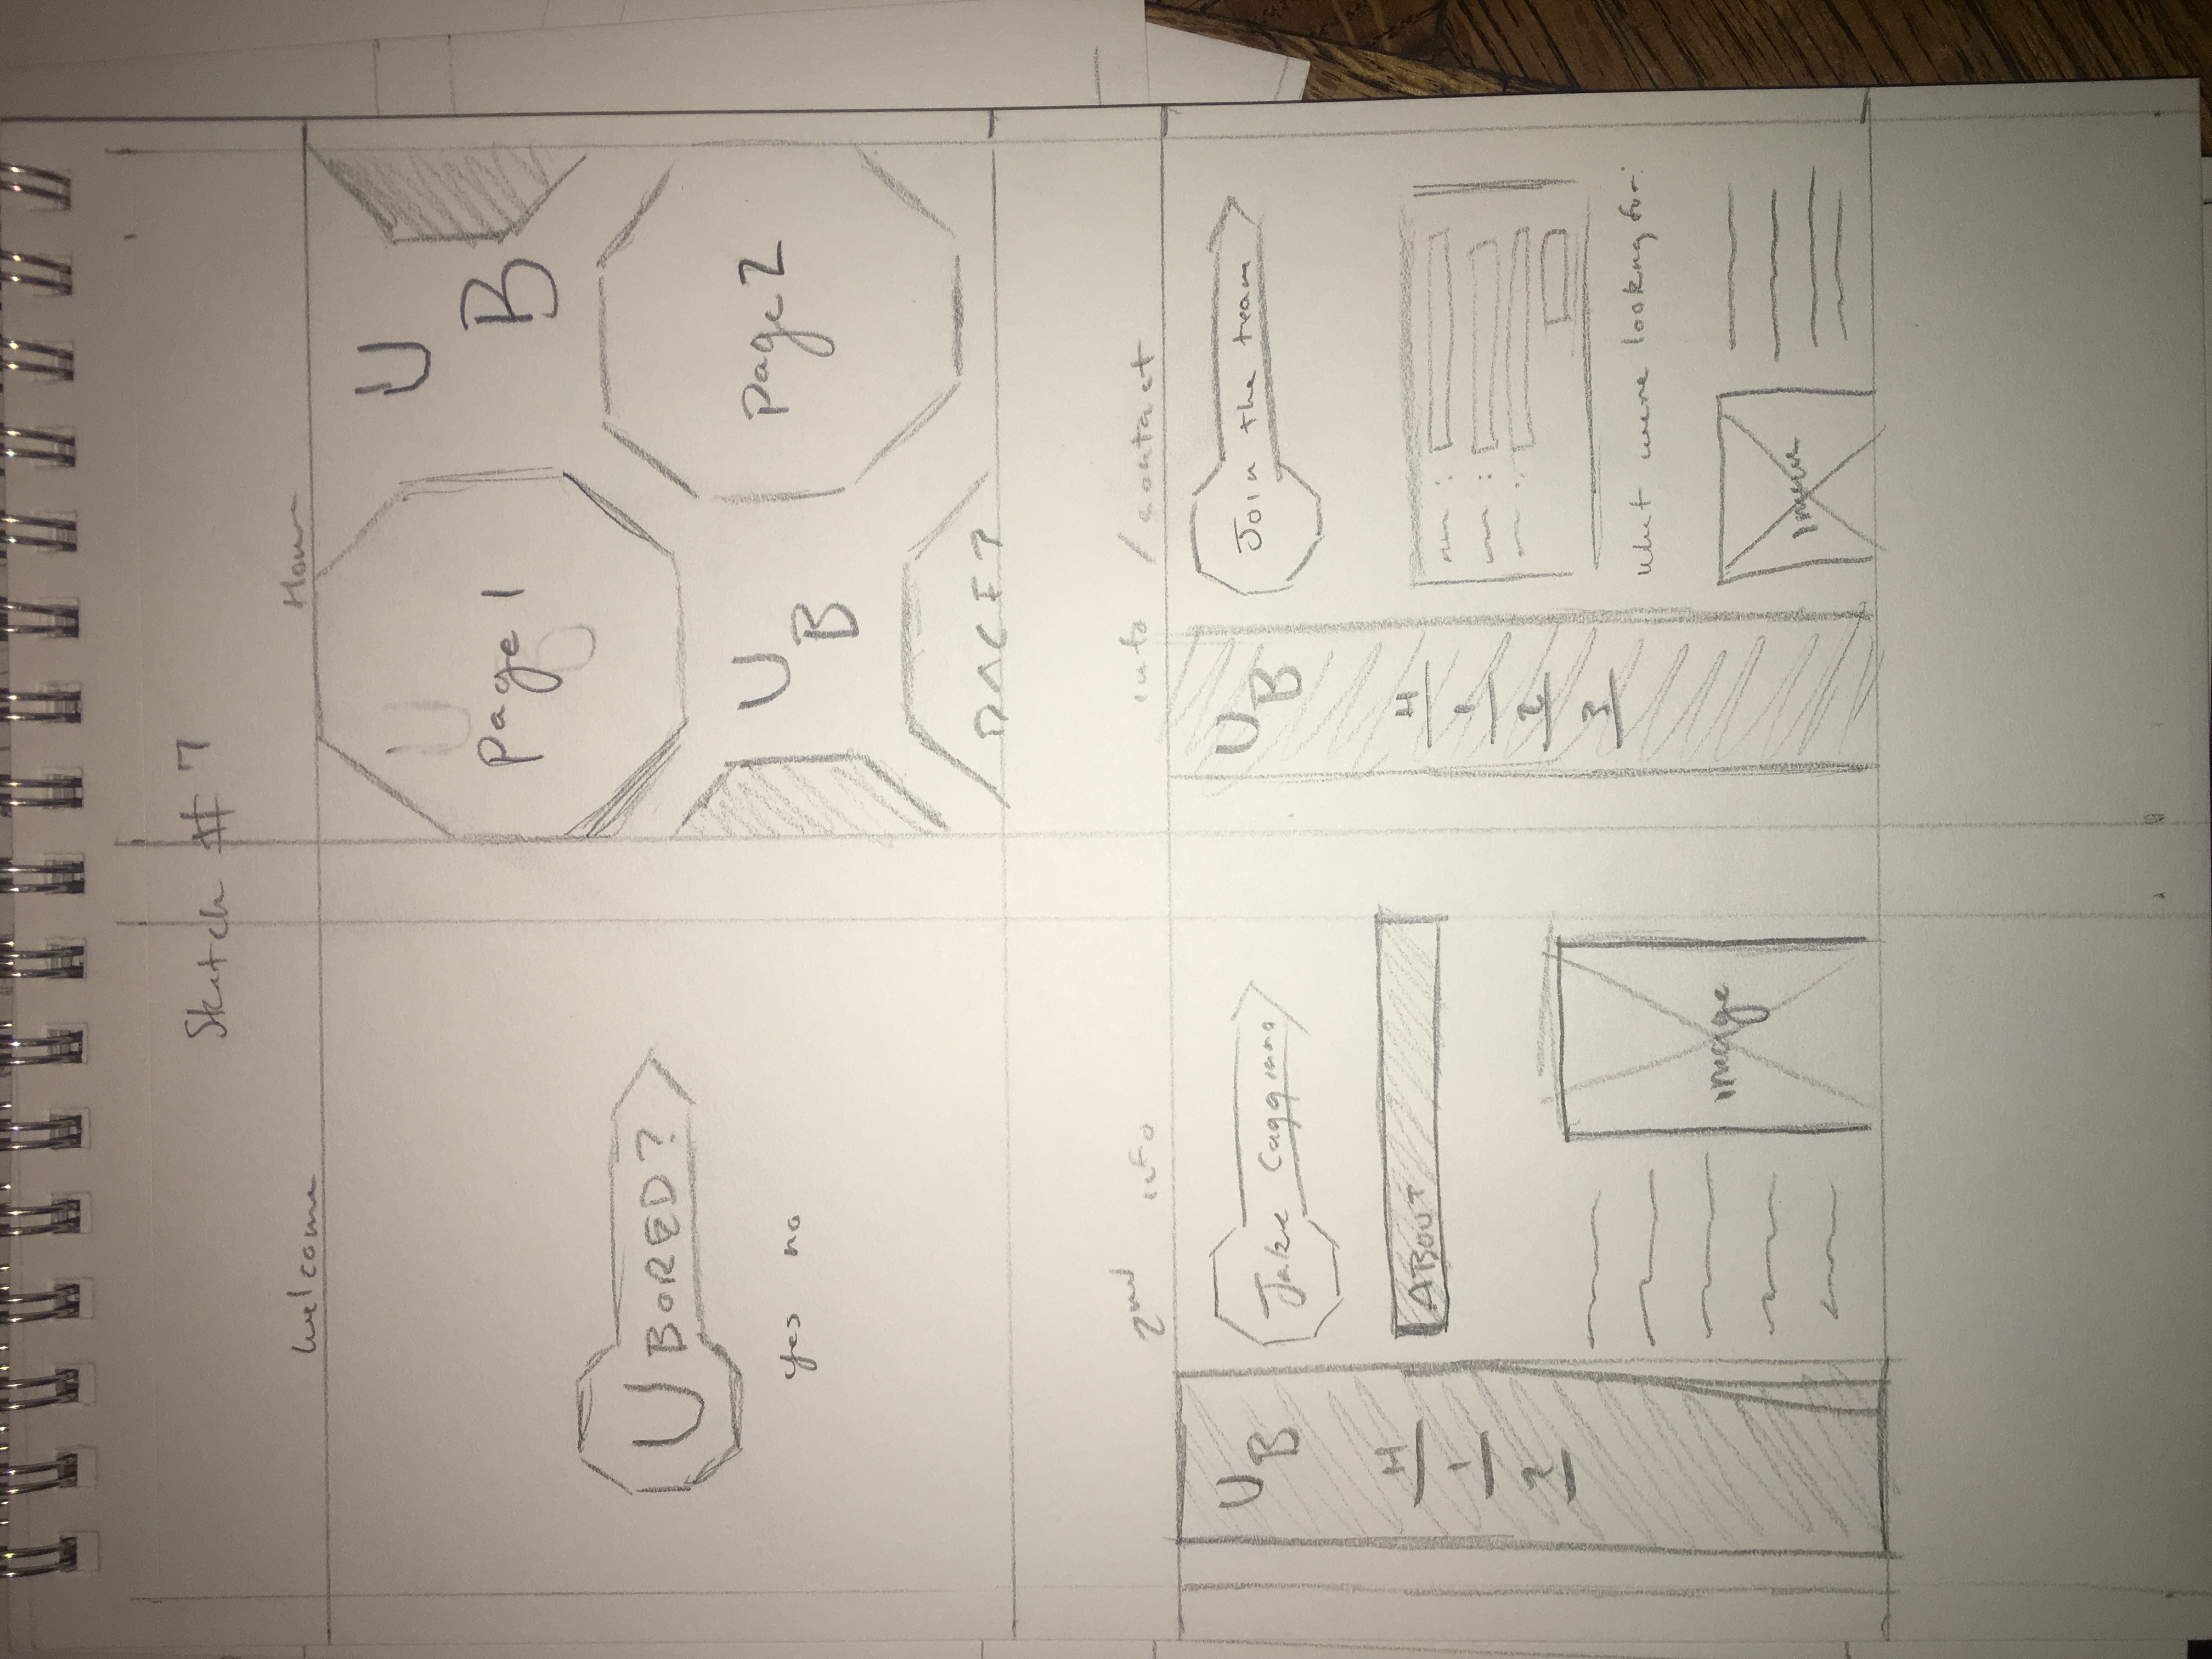 Sketch # 7
Welcome
U BORED?
yes no
Home
U
page 1
B
U
B
U
B
page 2
PAGE 3
2nd info
U
B
H
1
2
Jake Caggiano
ABOUT
image
info / contact
U
B
H
1
2
3
Join the team
What were looking for:
image